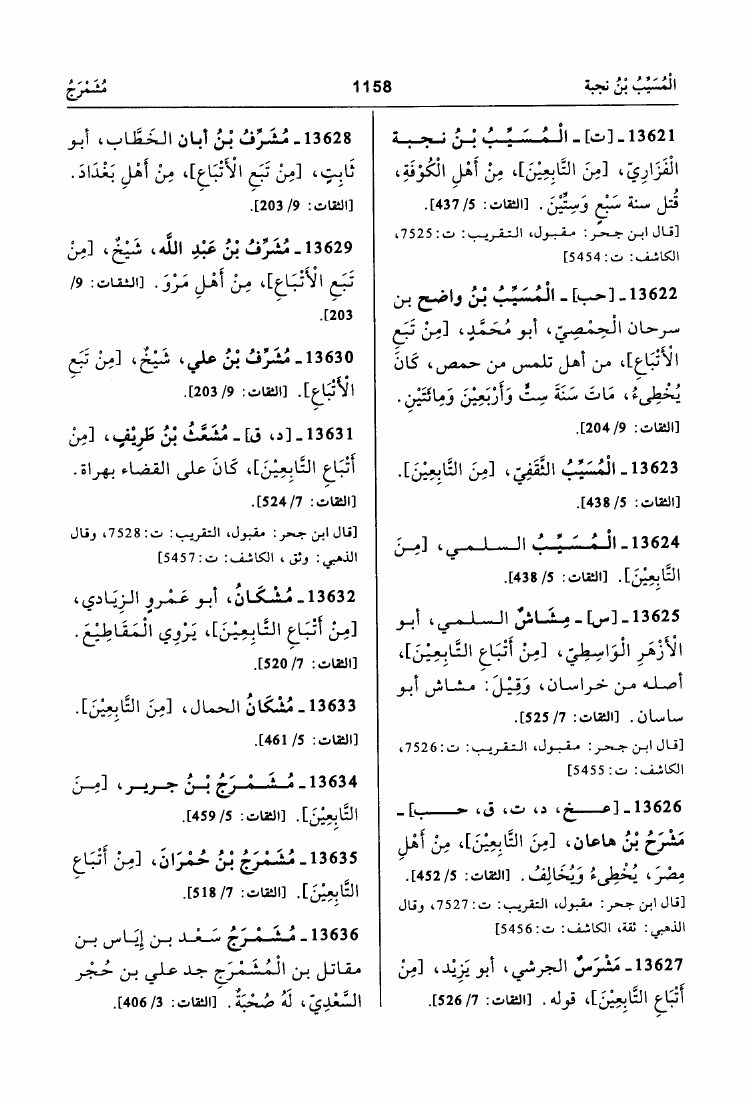 الْمُسَيِّبُ بْنُ نجبة
1158
مُشَمْرَجُ
13621 ـ [ت] ـ الْـمُـسَـيِّـبُ بْـنُ نـجـبـة
الْفَزَارِيّ، [مِنَ التَّابِعِيْنَ]، مِنْ أَهْلِ الْكُوْفَةِ،
قُتل سنة سَبْعٍ وَسِتِّيْنَ. [الثقات: 5/ 437].
[قـال ابن حجر: مقبول، التقريب: ت:7525،
الكاشف: ت:5454]
13622 ـ [حب] ـ الْمُسَيِّبُ بْنُ واضح بن
سرحان الْحِمْصِيّ، أبو مُحَمَّدٍ، [مِنْ تَبَعِ
الأَتْبَاعِ]، من أهل تلمس من حمص، كَانَ
يُخْطِىءُ، مَاتَ سَنَةَ سِتٍّ وَأَرْبَعِيْنَ وَمِائَتَيْنِ.
[الثقات: 9/ 204].
13623 ـ الْمُسَيِّبُ الثَّقَفِيّ، [مِنَ التَّابِعِيْنَ].
[الثقات: 5/ 438].
13624 ـ الْـمُـسَـيِّـبُ الـسـلـمـي، [مِـنَ
التَّابِعِيْنَ]. [الثقات: 5/ 438].
13625 ـ [س] ـ مِـشَـاشٌ السلمي، أبـو
الأَزْهَرِ الْوَاسِطِيّ، [مِنْ أَتْبَاعِ التَّابِعِيْنَ]،
أصلـه مـن خـراسان، وَقِيْلَ: مشـاش أبـو
ساسان. [الثقات: 7/ 525].
[قـال ابن حجر: مقبول، التقريب: ت:7526،
الكاشف: ت:5455]
13626 ـ [عـخ، د، ت، ق، حـب] ـ
مَشْرَحُ بْنُ هاعان، [مِنَ التَّابِعِيْنَ]، مِنْ أَهْلِ
مِصْرَ، يُخْطِىءُ وَيُخَالِفُ. [الثقات: 5/ 452].
[قال ابن حجر: مقبول، التقريب: ت:7527، وقال
الذهبي: ثقة، الكاشف: ت:5456]
13627 ـ مَشْرَسٌ الجرشي، أبو يَزِيْد، [مِنْ
أَتْبَاعِ التَّابِعِيْنَ]، قوله. [الثقات: 7/ 526].
13628 ـ مُشَرِّفُ بْنُ أبان الخَطَّاب، أبو
ثَابِتٍ، [مِنْ تَبَعِ الأَتْبَاعِ]، مِنْ أَهْلِ بَغْدَادَ.
[الثقات: 9/ 203].
13629 ـ مُشَرِّفُ بْنُ عَبْدِ اللَّه، شَيْخٌ، [مِنْ
تَبَعِ الأَتْبَاعِ]، مِنْ أَهْلِ مَرْوَ. [الثقات: 9/
203].
13630 ـ مُشَرِّفُ بْنُ علي، شَيْخٌ، [مِنْ تَبَعِ
الأَتْبَاعِ]. [الثقات: 9/ 203].
13631 ـ [د، ق] ـ مُشَعَّثُ بْنُ طَرِيْفٍ، [مِنْ
أَتْبَاعِ التَّابِعِيْنَ]، كَانَ على القضاء بهراة.
[الثقات: 7/ 524].
[قال ابن حجر: مقبول، التقريب: ت:7528، وقال
الذهبي: وثق، الكاشف: ت:5457]
13632 ـ مُشْكَانُ، أبـو عَـمْـرٍو الـزِّيَـادي،
[مِنْ أَتْبَاعِ التَّابِعِيْنَ]، يَرْوِي الْمَقَاطِيْعَ.
[الثقات: 7/ 520].
13633 ـ مُشْكَانُ الحمال، [مِنَ التَّابِعِيْنَ].
[الثقات: 5/ 461].
13634 ـ مُـشَـمْـرَجُ بْـنُ جـريـر، [مِـنَ
التَّابِعِيْنَ]. [الثقات: 5/ 459].
13635 ـ مُشَمْرَجُ بْنُ حُمْرَانَ، [مِنْ أَتْبَاعِ
التَّابِعِيْنَ]. [الثقات: 7/ 518].
13636 ـ مُشَمْرَجُ سَعْد بـن إيَاس بـن
مقاتل بن الْمُشَمْرَج جد علي بن حُجْر
السَّعْدِيّ، لَهُ صُحْبَةٌ. [الثقات: 3/ 406].